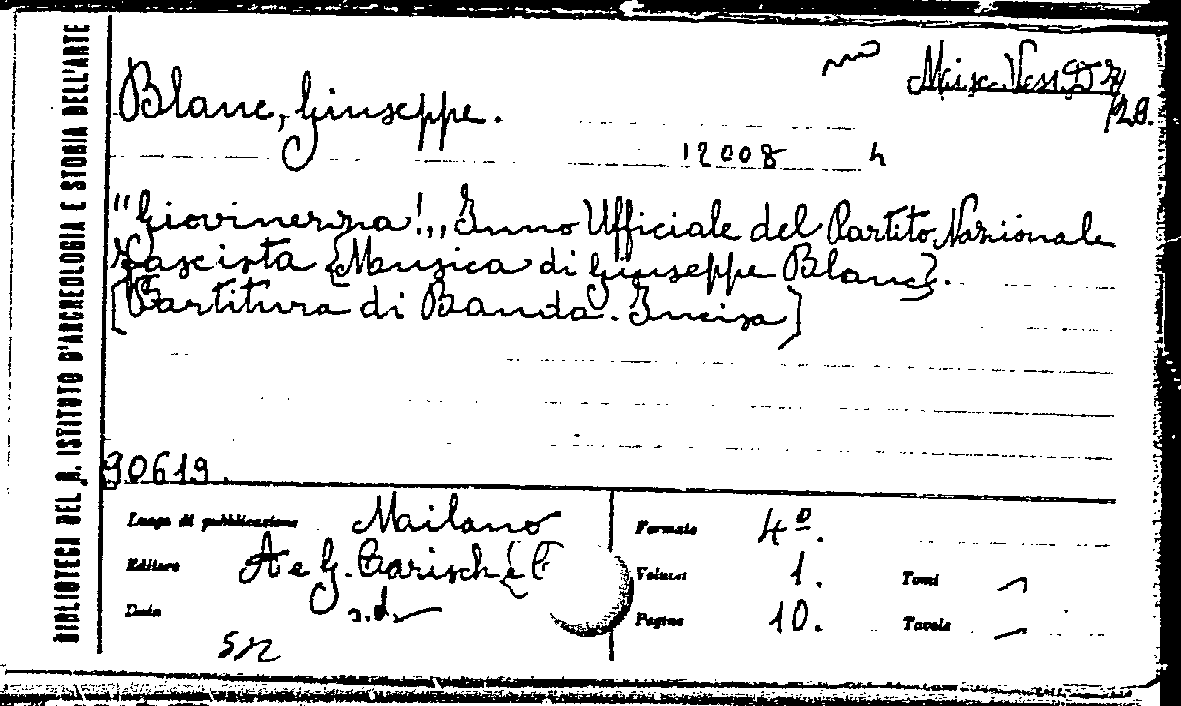 BIBLIOTECA DEL R. ISTITUTO D'ARCHEOLOGIA E STORIA DELL'ARTE
Blanc, Giuseppe.
12008
"Giovinezza!„ Inno Ufficiale del Partito Nazionale
Fascista {Musica di Giuseppe Blanc}.
[Partitura di Banda. Incisa]
90619.
Luogo di pubblicazione Milano
Editore A e G. Carisch e
Data s.d.
Formato 4º.
Volumi 1. Tomi
Pagine 10. Tavole